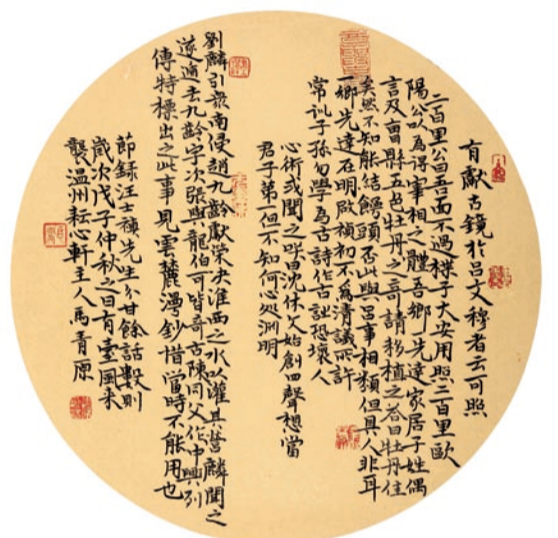 有獻古鏡於呂文穆者云可照
二百里公曰吾面不過楪子大安用照二百里歐
陽公以為得宰相之體吾鄉先達家居子姓偶
言及曹縣五色牡丹之奇請移植之答曰牡丹佳
矣然不知能結饅頭否此與呂事相類但其人非耳
一鄉先達在明啟禎初不為清議所許
常訓子孫勿學為古詩作古詩恐壞人
心術或聞之呼曰沈休文始創四聲想當
君子第但不知何以處淵明
劉麟引眾南侵趙九齡獻策決淮西之水以灌其營麟聞之
遂遁去九齡字次張與龍伯可皆奇士陳同父作中興列
傳特標出之此事見雲麓漫鈔惜當時不能用也
節錄汪士禎先生分甘餘話數則
歲次戊子仲秋之日有臺風來
襲溫州耘心軒主人馬青原